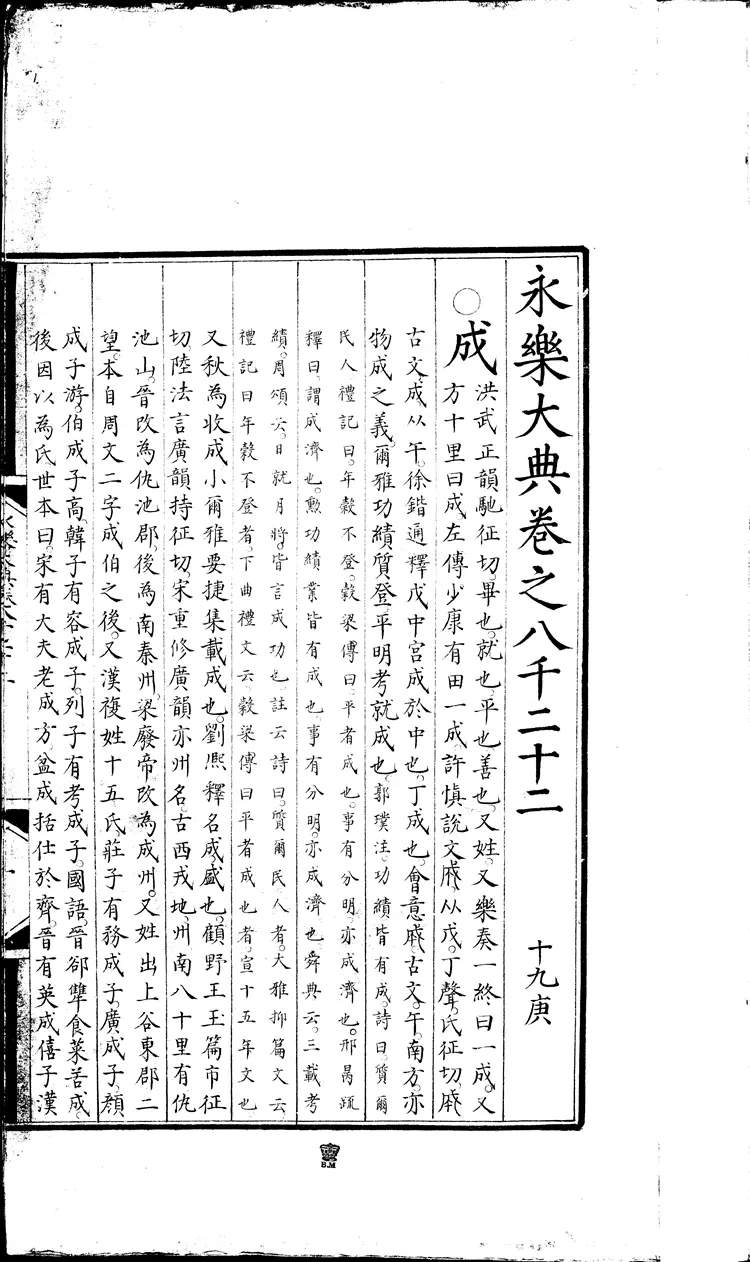 永樂大典卷之八千二十二
十九庚
○成
洪武正韻馳征切。畢也。就也。平也。善也。又姓。又樂奏一終曰一成。又
方十里曰成。左傳少康有田一成。許愼說文成。从戊。丁聲。氏征切。
古文。成从午。徐鍇通釋戊中宮成於中也。丁成也。會意。古文。午。南方。亦
物成之義。爾雅功績質登平明考就成也。郭璞注。功績皆有成。詩曰。質爾
民人。禮記曰。年穀不登。穀梁傳曰。平者成也。事有分明。亦成濟也。邢昺疏
釋曰。謂成濟也。勲功績業皆有成也。事有分明。亦成濟也。舜典云。三載考
績。周頌云。日就月將。皆言成功也。註云詩曰。質爾民人者。大雅抑篇文云
禮記曰年穀不登者。下曲禮文云。穀梁傳曰平者成也者。宣十五年文也
又秋為收成。小爾雅要捷集載成也。劉熙釋名成。盛也。顧野王玉篇市征
切。陸法言廣韻持征切。宋重修廣韻亦州名。古西戎地。州南八十里有仇
池山。晉改為仇池郡。後為南秦州。梁廢帝。改為成州。又姓出上谷東郡二
望。本自周文二字成伯之後。又漢複姓十五氏。莊子有務成子。廣成子。顔
成子游。伯成子高。韓子有容成子。列子有考成子。國語。晉郤犨食菜苦成。
後因以為氏。世本曰。宋有大夫老成方。盆成括仕於齊。晉有英成僖子。漢
B.M